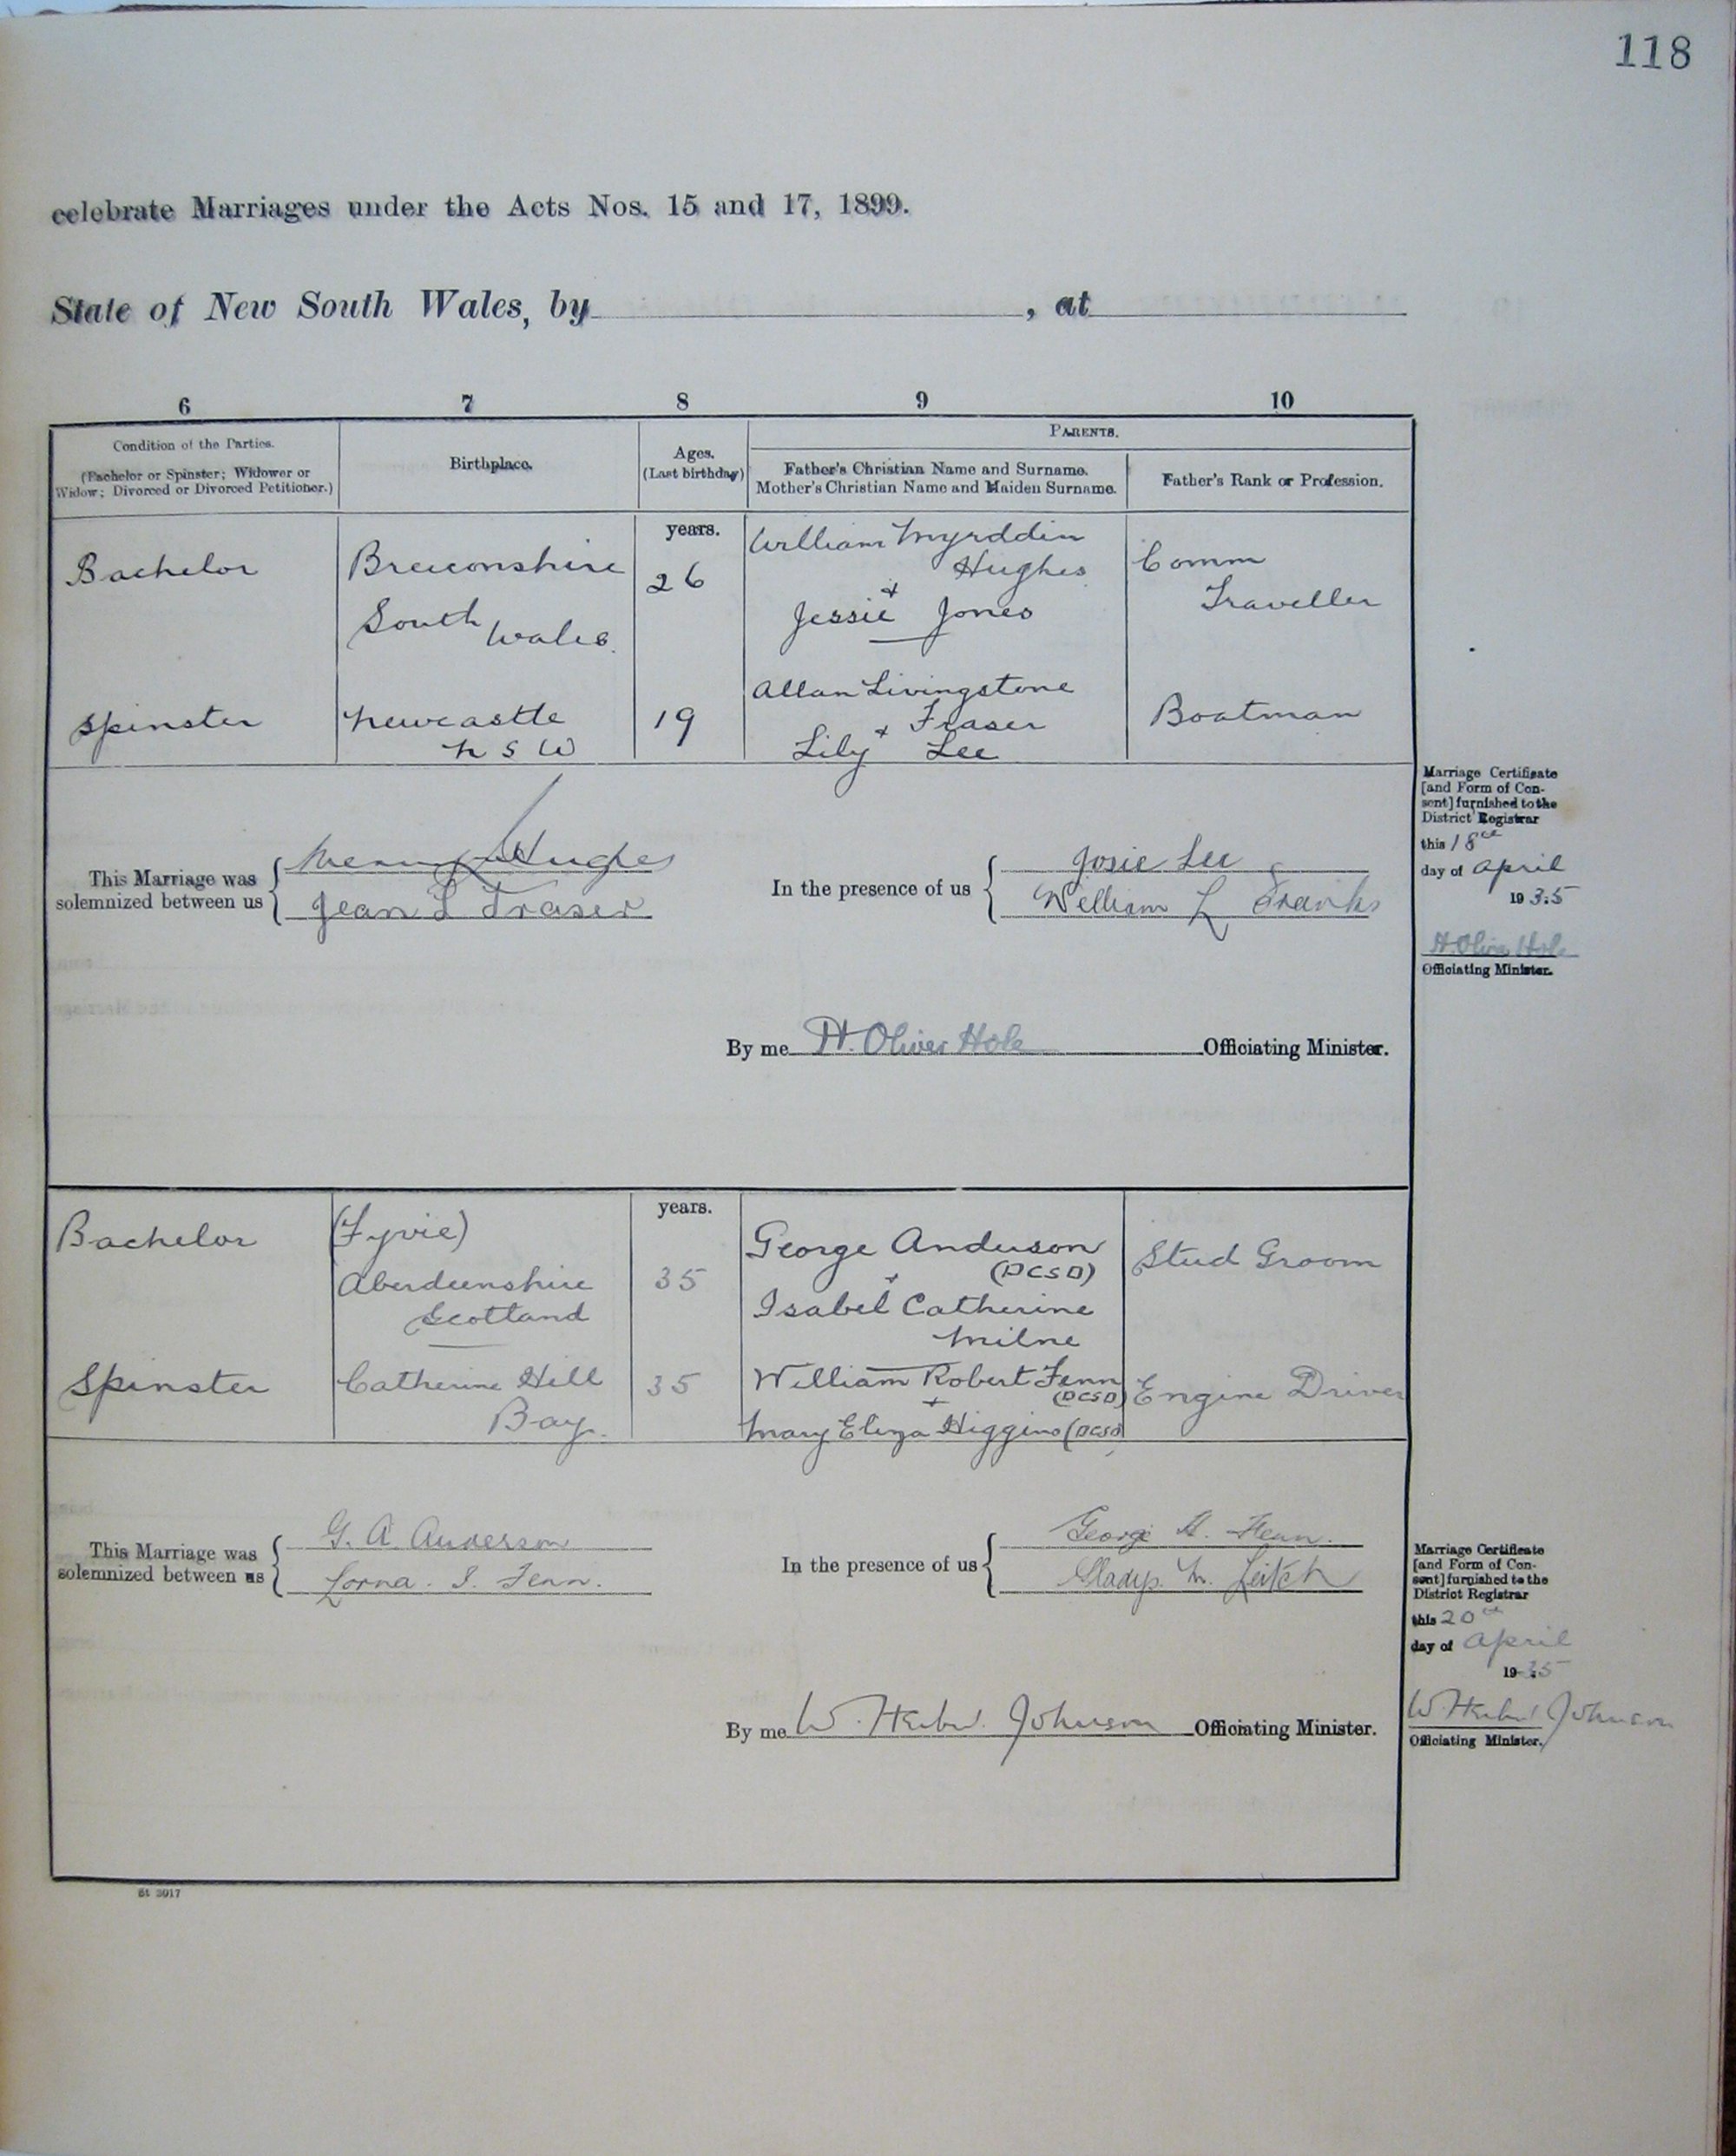 118
celebrate Marriages under the Acts Nos. 15 and 17, 1899.
State of New South Wales, by , at
6 7 8 9 10
Condition of the Parties.
(Bachelor or Spinster; Widower or
Widow; Divorced or Divorced Petitioner.)
Birthplace.
Ages.
(Last birthday)
PARENTS.
Father's Christian Name and Surname.
Mother's Christian Name and Maiden Surname.
Father's Rank or Profession.
years.
Bachelor
Breconshire
South Wales.
26
William Myrddin
Hughes
+
Jessie Jones
Comm
Traveller
Spinster
Newcastle
N S W
19
Allan Livingstone
Fraser
+
Lily Lee
Boatman
This Marriage was
solemnized between us
Hughes
Jean L Fraser
In the presence of us
Josie Lee
William L Franks
By me H. Oliver Hole Officiating Minister.
Marriage Certificate
[and Form of Con-
sent] furnished to the
District Registrar
this 18th
day of April
1935
H. Oliver Hole
Officiating Minister.
years.
Bachelor
(Fyvie)
Aberdeenshire
Scotland
35
George Anderson
(DCSD)
+
Isabel Catherine
Milne
Stud Groom
Spinster
Catherine Hill
Bay.
35
William Robert Fenn
(DCSD)
+
Mary Eliza Higgins (DCSD)
Engine Driver
This Marriage was
solemnized between us
G. A. Anderson
Lorna. I. Fenn.
In the presence of us
George H. Fenn.
Gladys. M. Leitch
By me W. Johnson Officiating Minister.
Marriage Certificate
[and Form of Con-
sent] furnished to the
District Registrar
this 20th
day of April
1935
W. Johnson
Officiating Minister.
St 3017